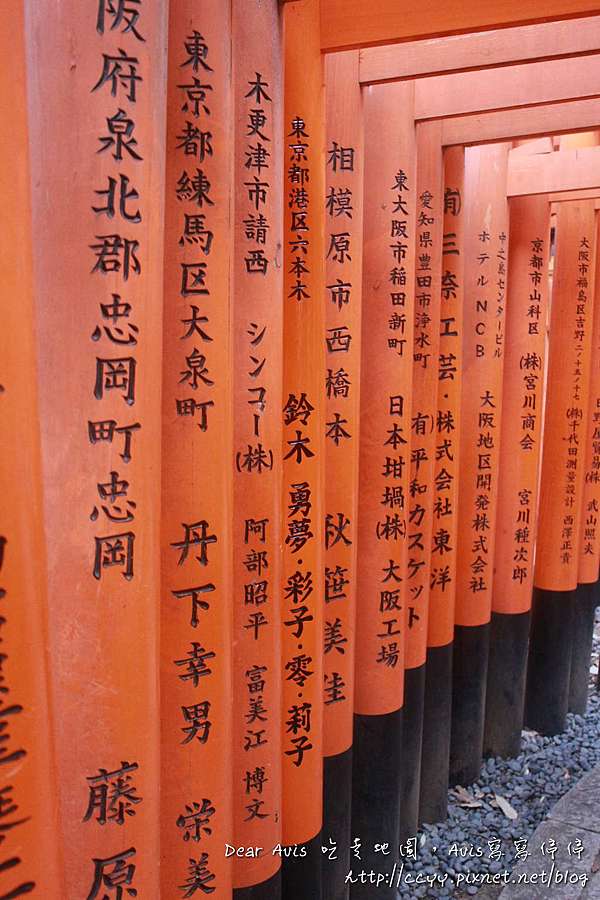 阪府泉北郡忠岡町忠岡
藤原
東京都練馬区大泉町
丹下幸男
栄美
木更津市請西
シンコー(株)
阿部昭平
富美江
博文
東京都港区六本木
鈴木勇夢・彩子・零・莉子
相模原市西橋本
秋笹美佳
東大阪市稲田新町
日本坩堝(株)大阪工場
愛知県豊田市浄水町
有)平和カスケット
有三奈工芸・株式会社東洋
中之島センタービル
ホテルNCB
大阪地区開発株式会社
京都市山科区
(株)宮川商会
宮川種次郎
大阪市福島区吉野二ノ十五ノ十七
(株)千代田測量設計
西澤正貴
日野屋貿易(株)
武山照夫
Dear Avis 吃喜地圖。Avis寫寫停停
http://ccyy.pixnet.net/blog